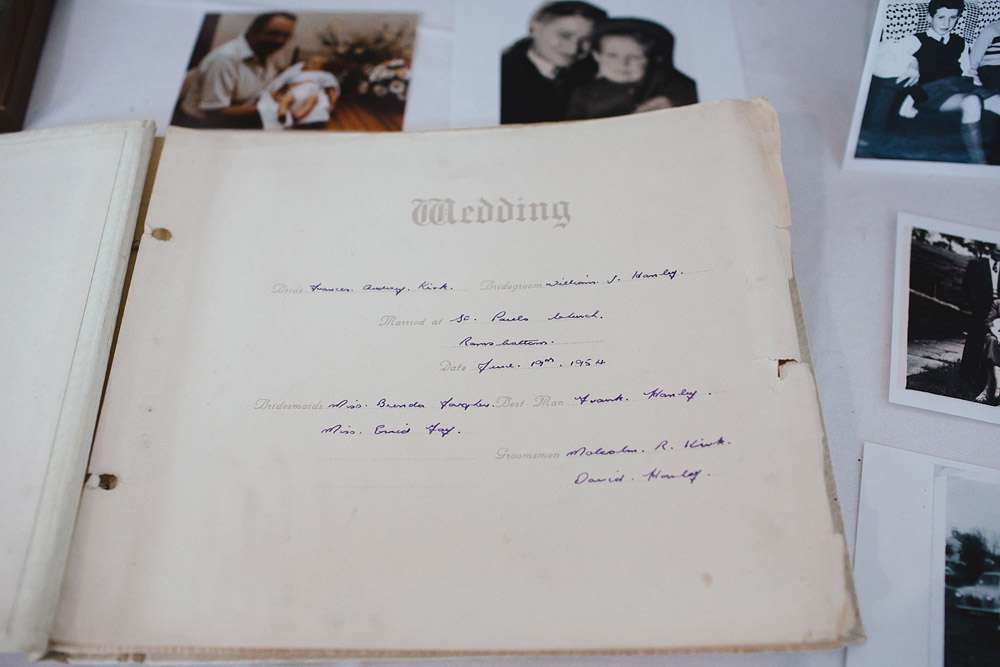 Wedding
Bride Frances. Audrey. Kirk. Bridegroom William J. Hanley.
Married at St. Pauls Church.
Ramsbottom.
Date June. 19th. 1954
Bridesmaids Miss. Brenda Best Man Frank. Hanley.
Miss. Enid Fay.
Groomsmen Malcolm. R. Kirk.
David. Hanley.